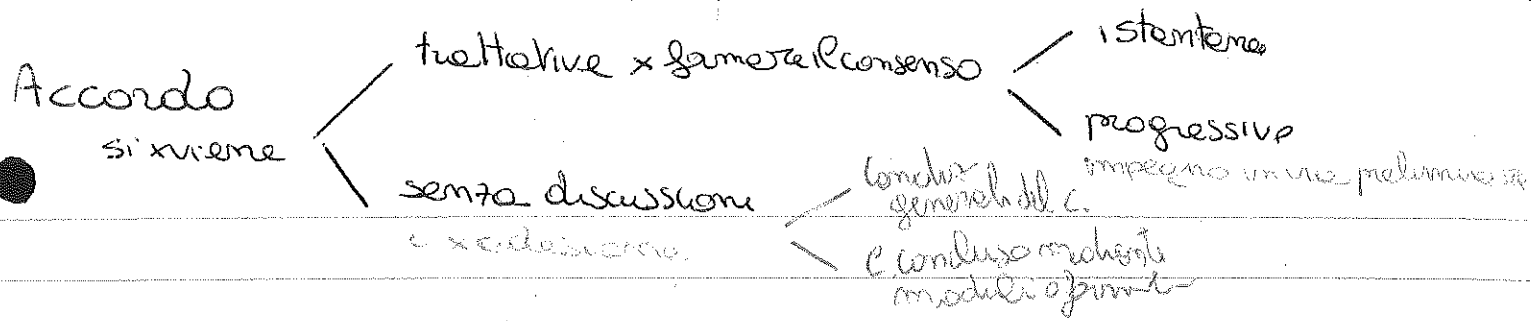 Accordo
si xviene
trattative x formare il consenso
istantanea
progressiva
impegno in via preliminare
senza discussione
c x adesione
Condiz
generali del c.
C. concluso mediante
moduli o formul